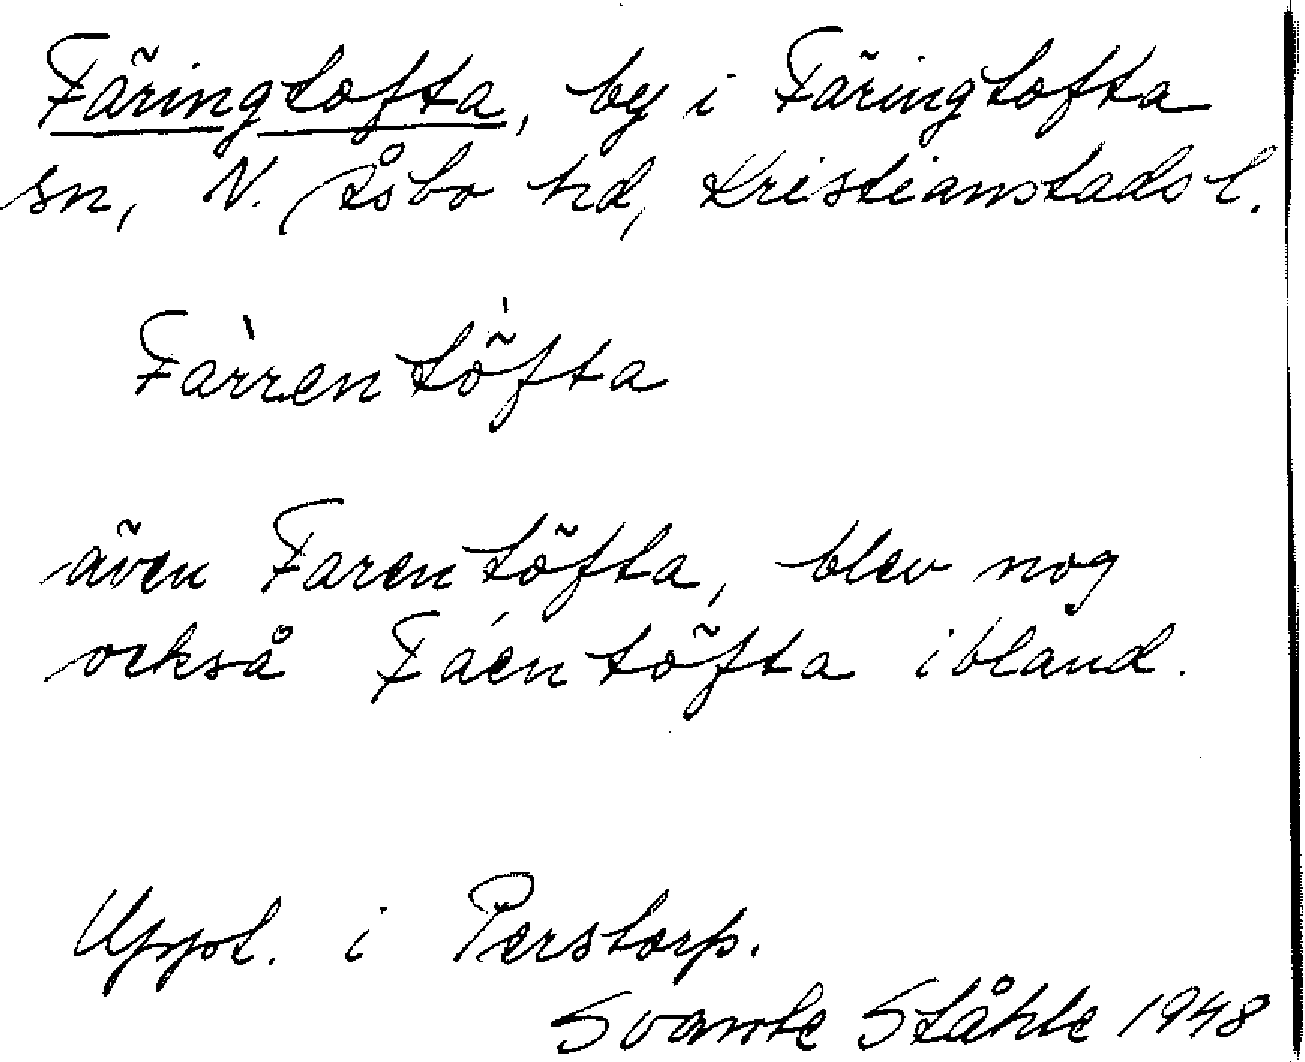 Färingtofta, by i Färingtofta
sn, N. Åsbo hd, Kristianstads l.
Fàrrentö́fta
även Farentöfta, blev nog
också Fáentöfta ibland.
Uppt. i Perstorp.
Svante Ståhle 1948